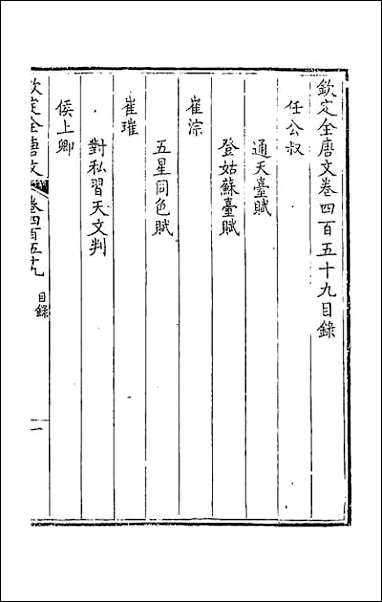 欽定全唐文卷四百五十九目錄
任公叔
通天臺賦
登姑蘇臺賦
崔淙
五星同色賦
崔璀
對私習天文判
侯上卿
欽定全唐文
卷四百五十九
目錄
一